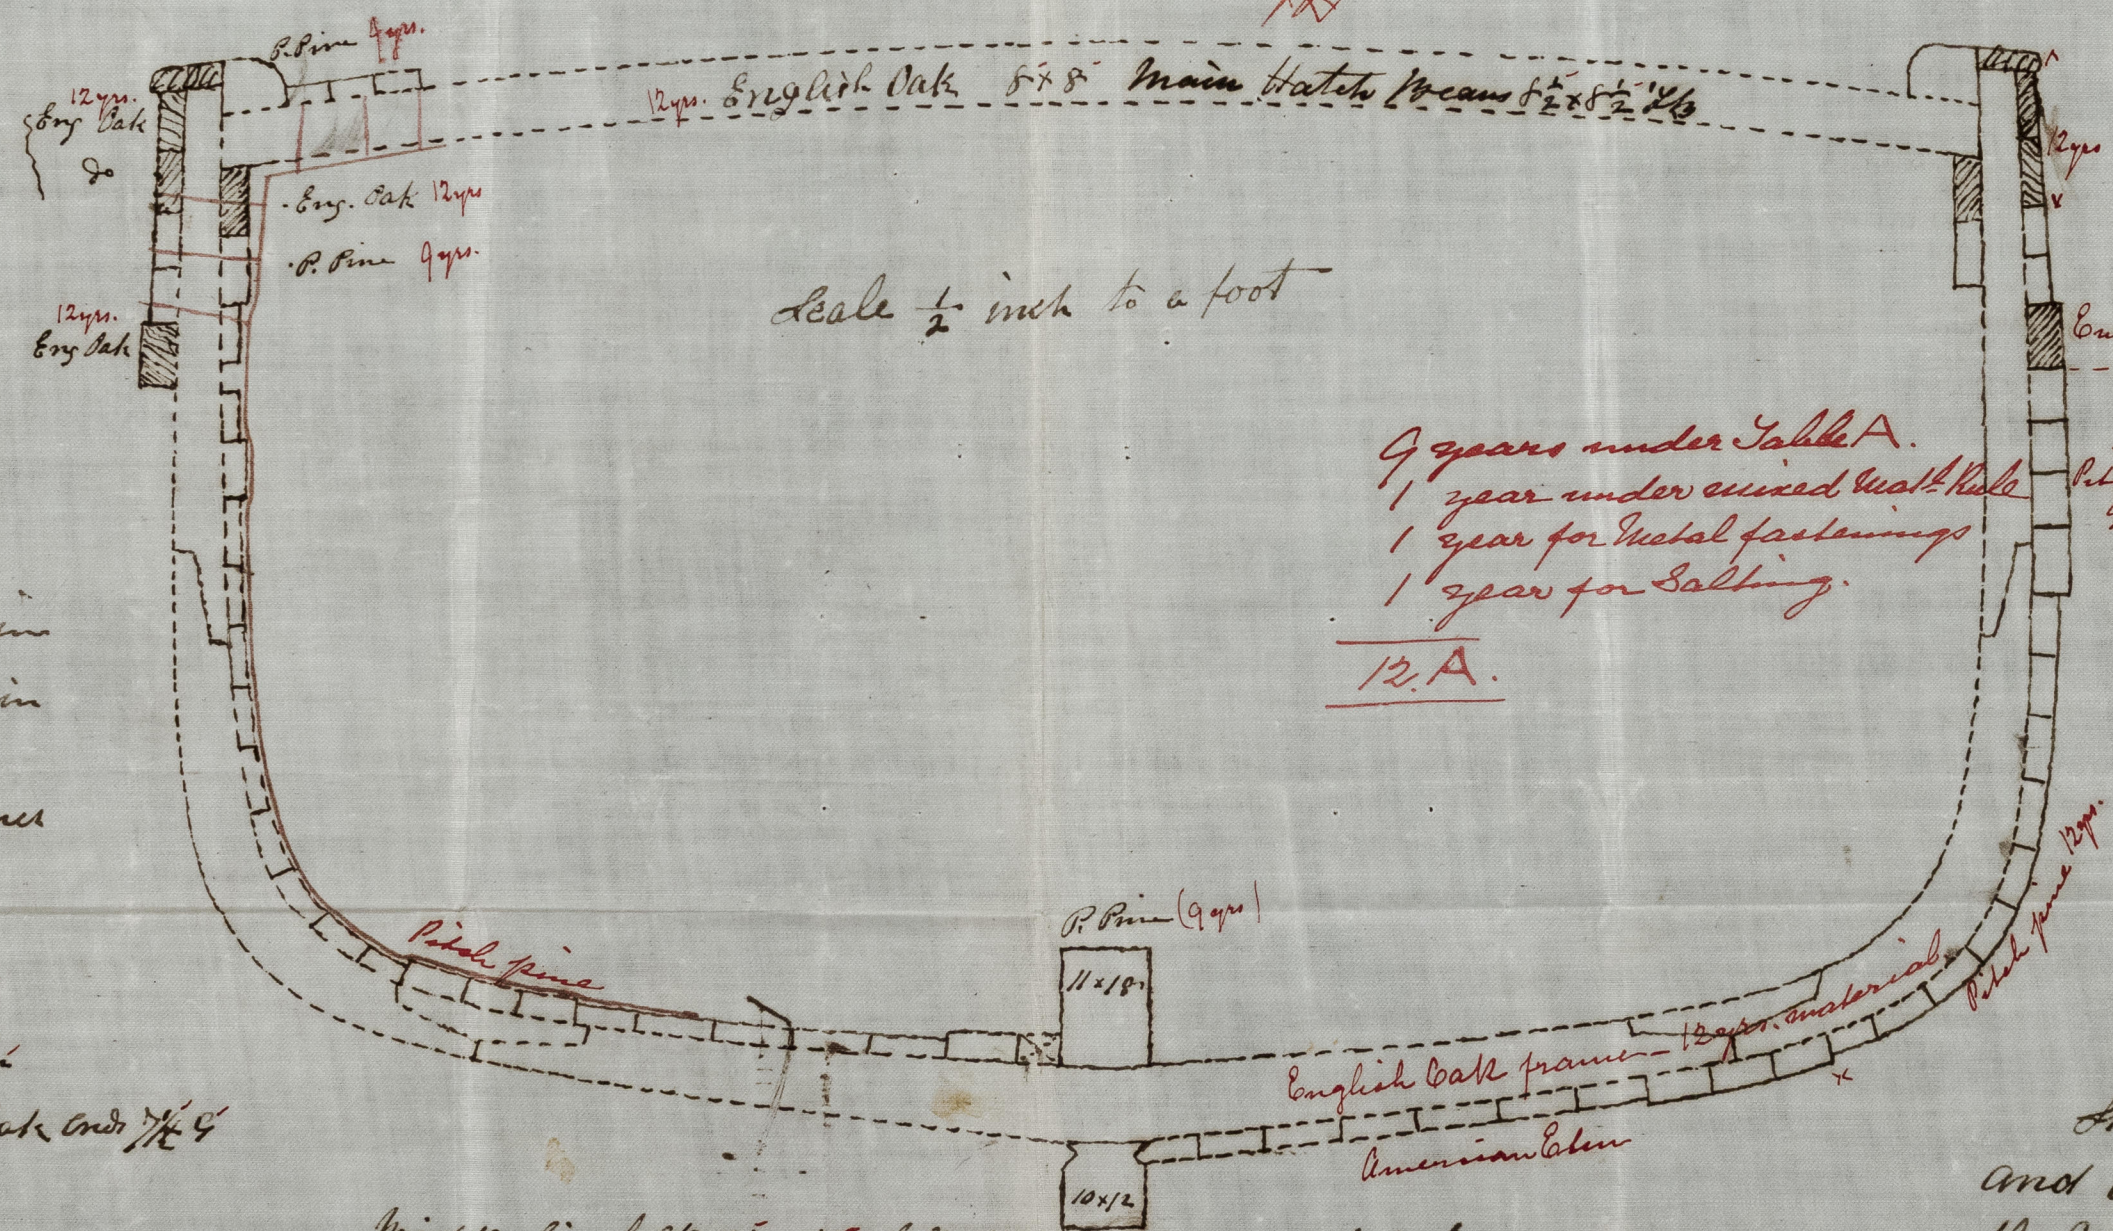 P. Pine 4 yrs.
12 yrs.
Eng Oak
do
12 yrs. English Oak 8 x 8 Main Hatch Beams 8 1/2 x 8 1/2
12 yrs
Eng. Oak 12 yrs
P. Pine 9 yrs.
12 yrs.
Eng Oak
Scale 1/2 inch to a foot
9 years under Table A.
1 year under mixed Matl Rule
1 year for Metal fastenings
1 year for Salting.
12. A.
Pitch pine
P. Pine (9 yrs)
11 x 18
English Oak frame - 12 yrs. material
Pitch pine 12 yrs.
American Elm
10 x 12
ends 7 1/4
and